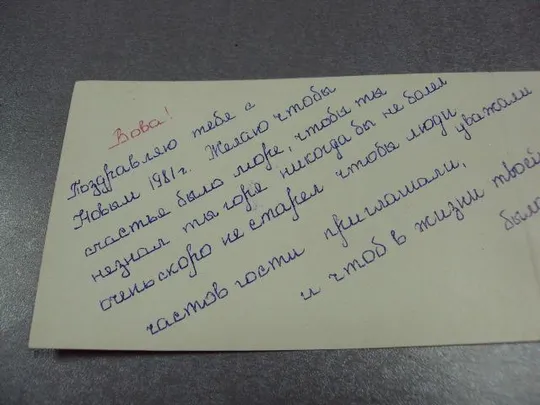 Вова!
Поздравляю тебе с
Новым 1981 г. Желаю чтобы
счастье было море, чтобы ты
незнал ты горе никогда бы не болел
оченьскоро не старел чтобы люди уважали
частов гости приглашали,
и чтоб в жизни твоей
было